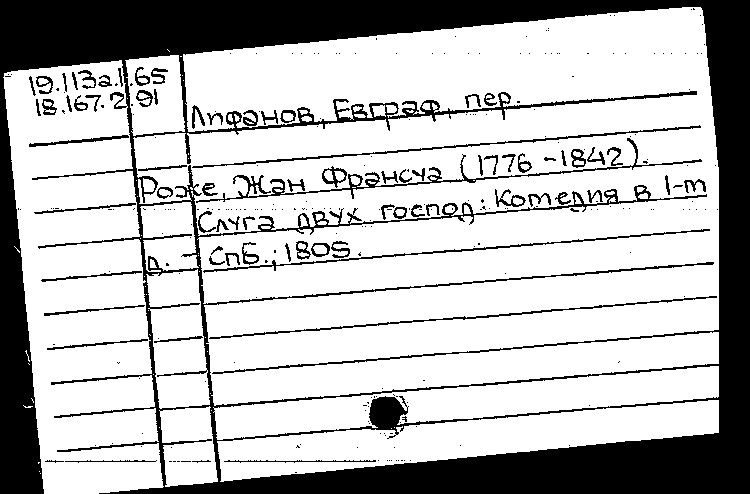 19.113а.1.65
18.167.2.91
Лифанов, Евграф, пер.
Роже, Жан Франсуа (1776-1842).
Слуга двух господ: Комедия в 1-m
д. - СпБ.; 1805.